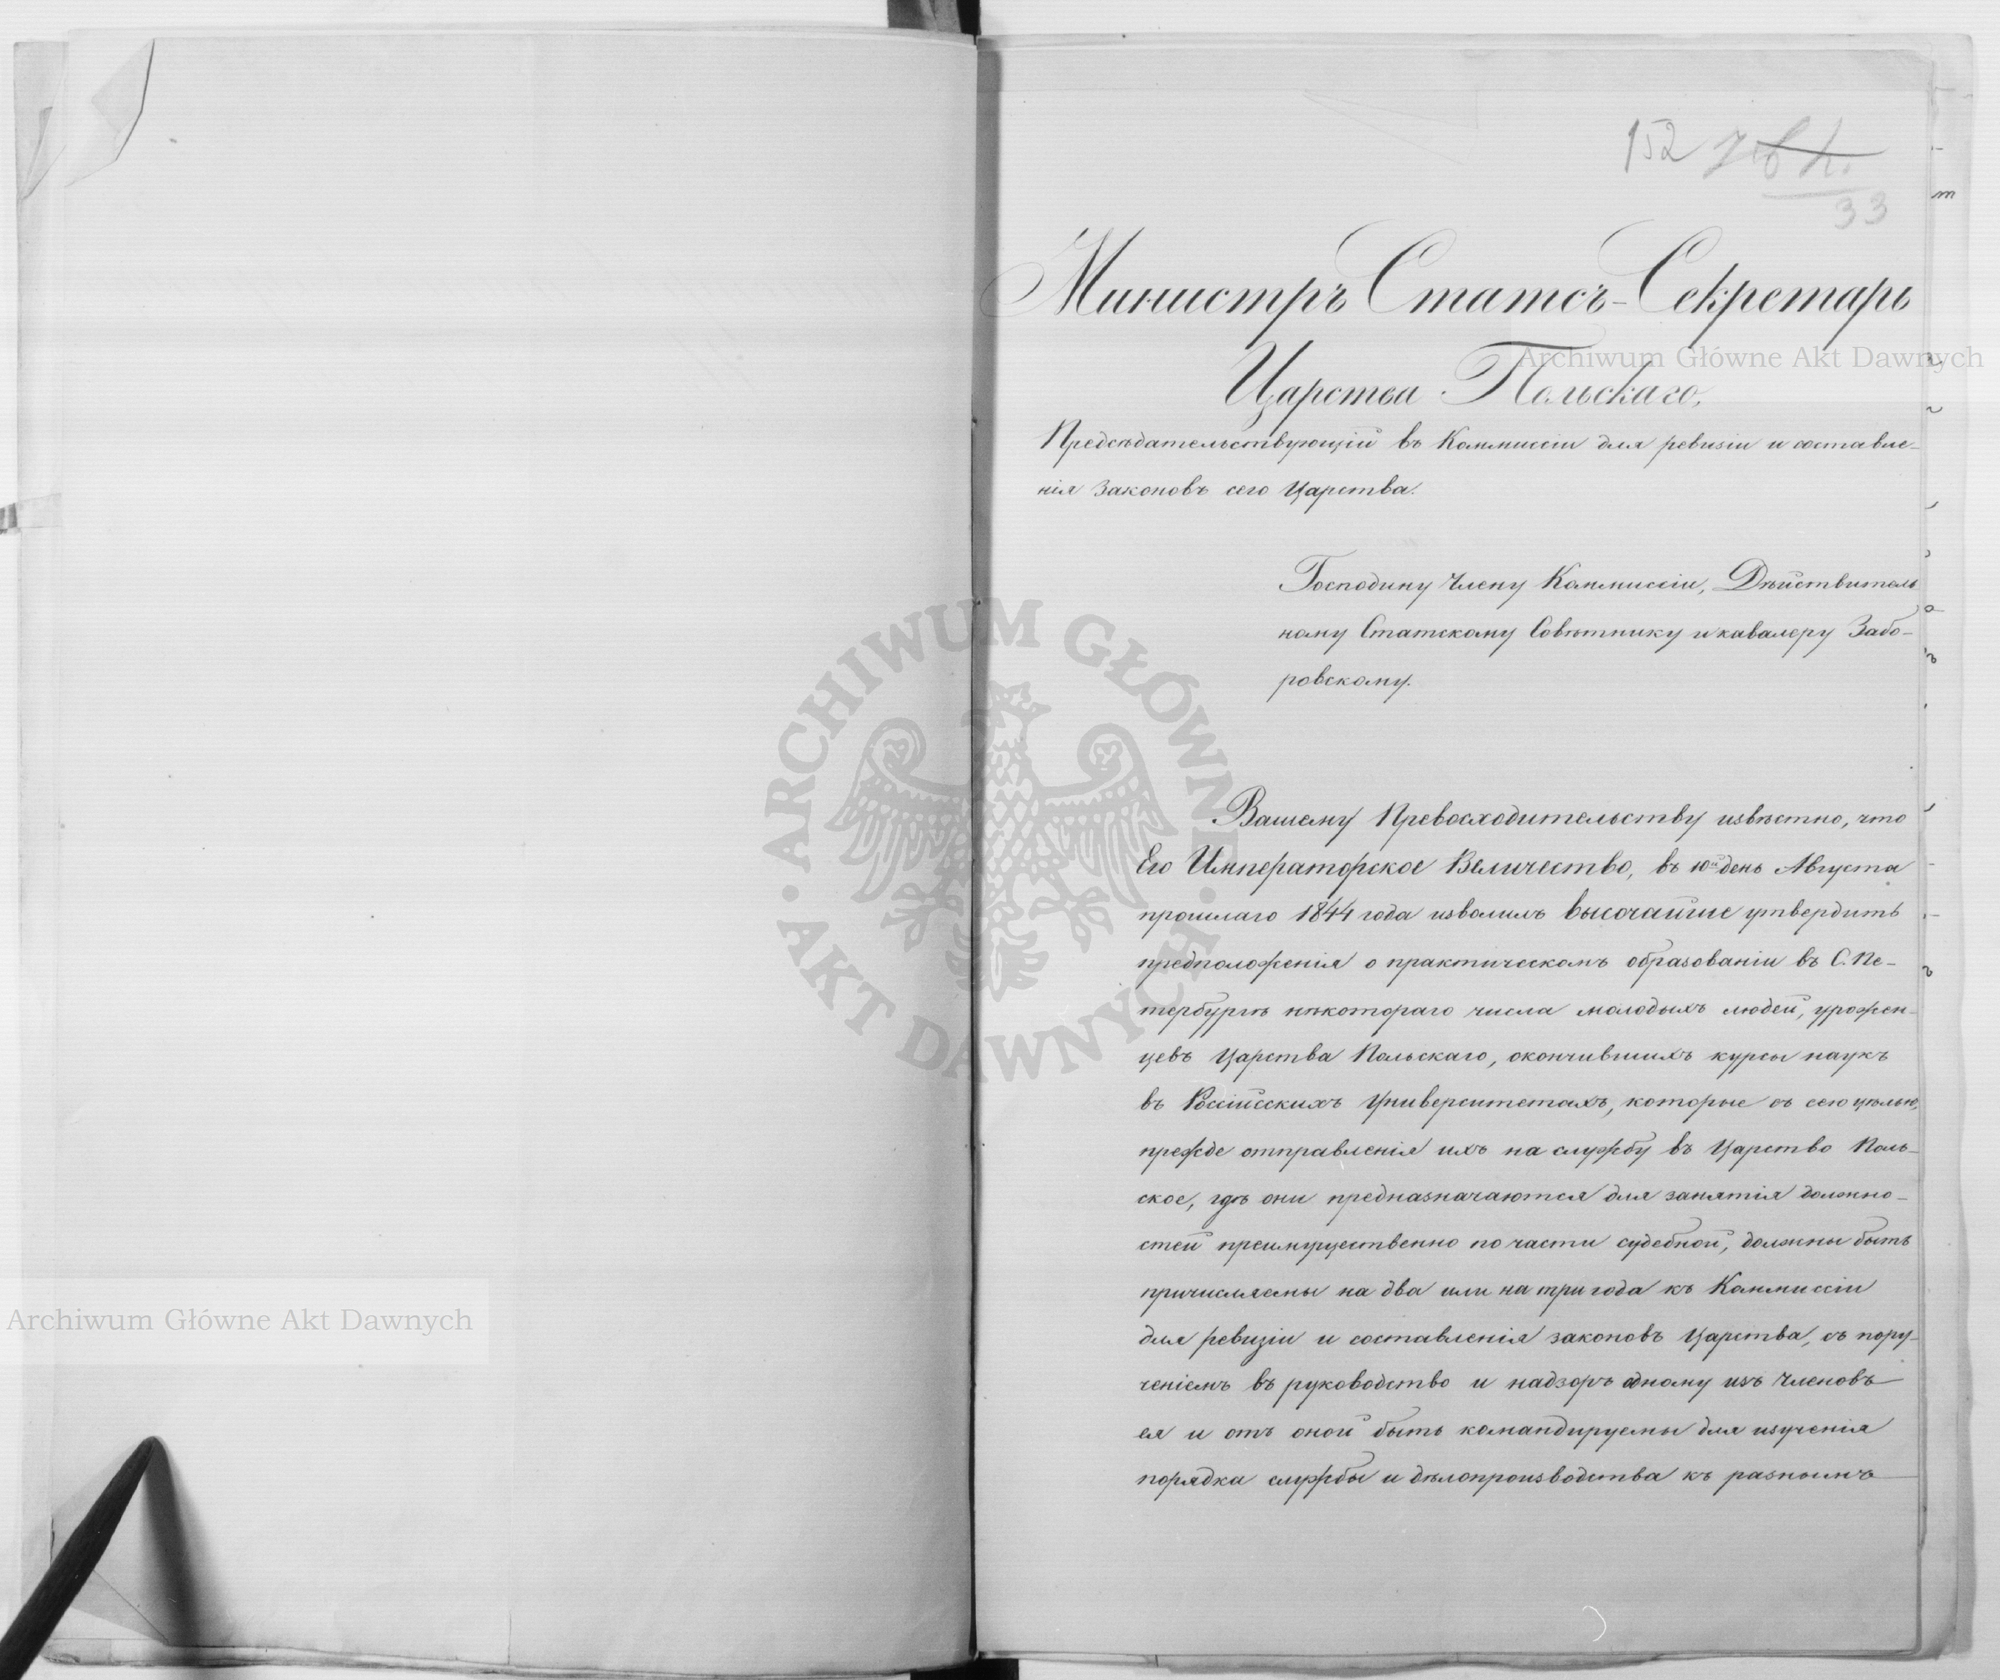 152
33
Министръ Статсъ-Секретарь
Царства Польскаго,
Предсѣдательствующій въ Коммиссіи для ревизіи и составле-
нія законовъ сего Царства.
Господину Члену Коммиссіи, Дѣйствитель
ному Статскому Совѣтнику и кавалеру Забо-
ровскому.
Вашему Превосходительству извѣстно, что
Его Императорское Величество, въ 10й день Августа
прошлаго 1844 года изволилъ высочайше утвердить
предположенія о практическомъ образованіи въ С. Пе-
тербургѣ нѣкотораго числа молодыхъ людей, урожен-
цевъ Царства Польскаго, окончившихъ курсы наукъ
въ Россійскихъ Университетахъ, которые съ сею цѣлью,
прежде отправленія ихъ на службу въ Царство Поль-
ское, гдѣ они предназначаются для занятія должно-
стей преимущественно по части судебной, должны быть
причисляемы на два или на три года къ Коммиссіи
для ревизіи и составленія законовъ Царства, съ пору-
ченіемъ въ руководство и надзоръ одному изъ Членовъ
ея и отъ оной быть командируемы для изученія
порядка службы и дѣлопроизводства къ разнымъ
Archiwum Główne Akt Dawnych
Archiwum Główne Akt Dawnych
ARCHIWUM GŁÓWNE · AKT DAWNYCH ·